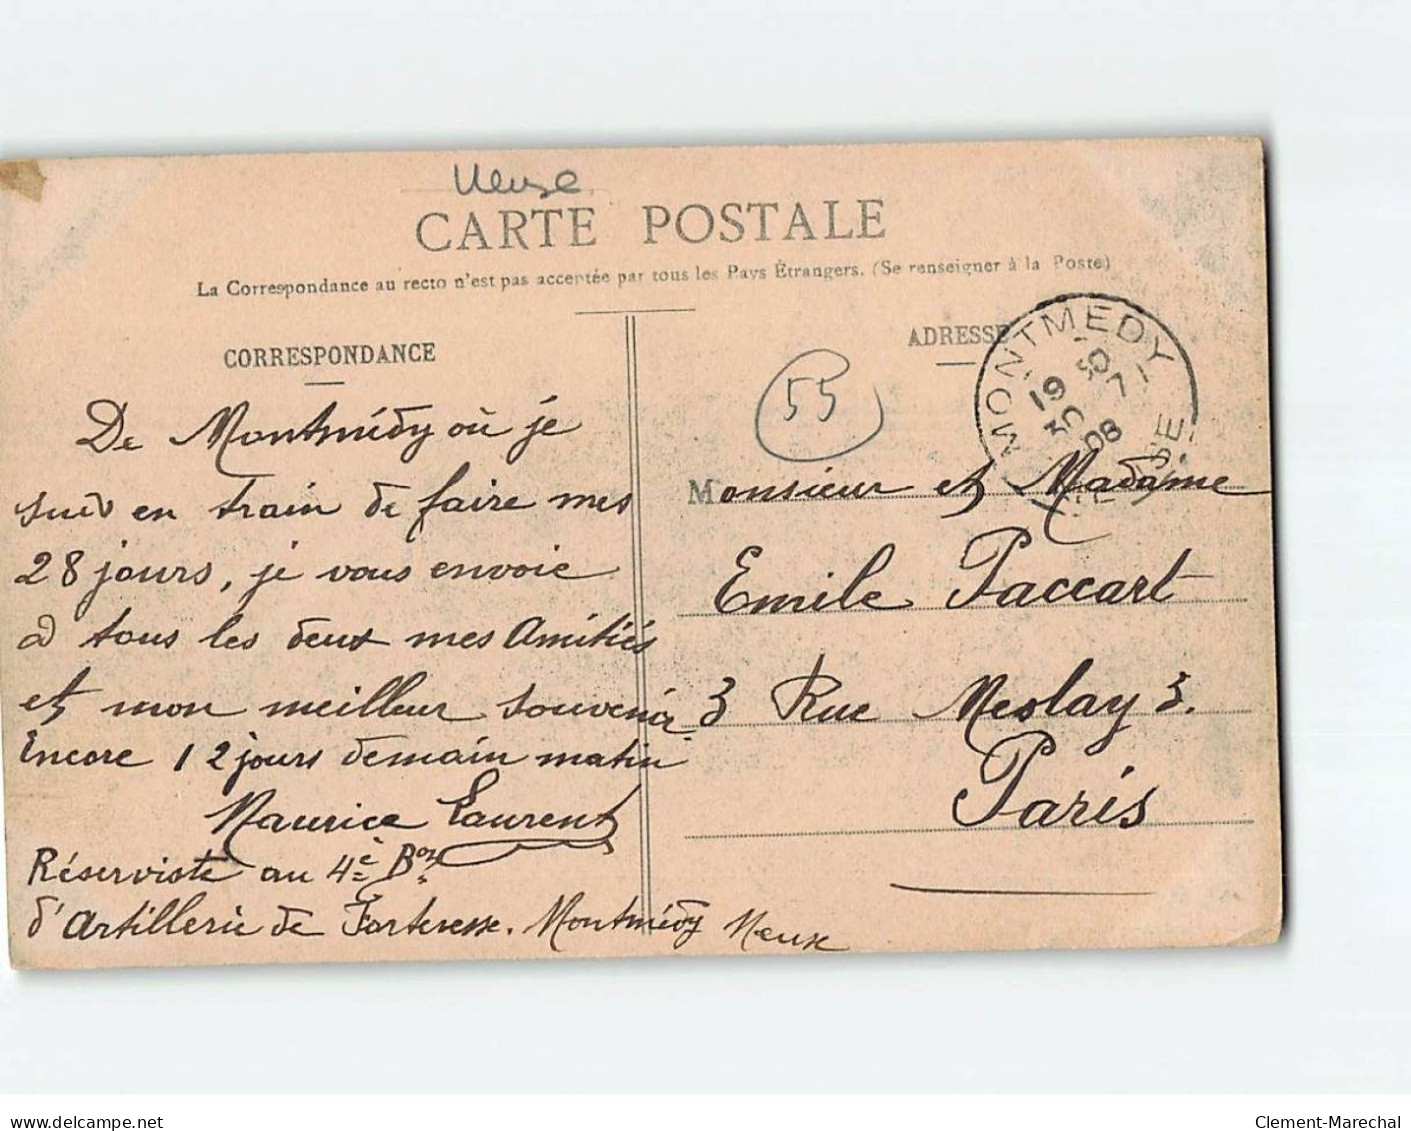 Meuse
CARTE POSTALE
La Correspondance au recto n'est pas acceptée par tous les Pays Étrangers. (Se renseigner à la Poste)
CORRESPONDANCE
De Montmédy où je
suis en train de faire mes
28 jours, je vous envoie
à tous les deux mes Amitiés
et mon meilleur souvenir.
Encore 12 jours demain matin
Maurice Laurent
Réserviste au 4è Bon
d'Artillerie de Forteresse. Montmédy Meuse
ADRESSE
55
MONTMEDY
19 30
30 7
08
MEUSE
Monsieur et Madame
Emile Paccart
3 Rue Meslay 3.
Paris
www.delcampe.net
Clement-Marechal